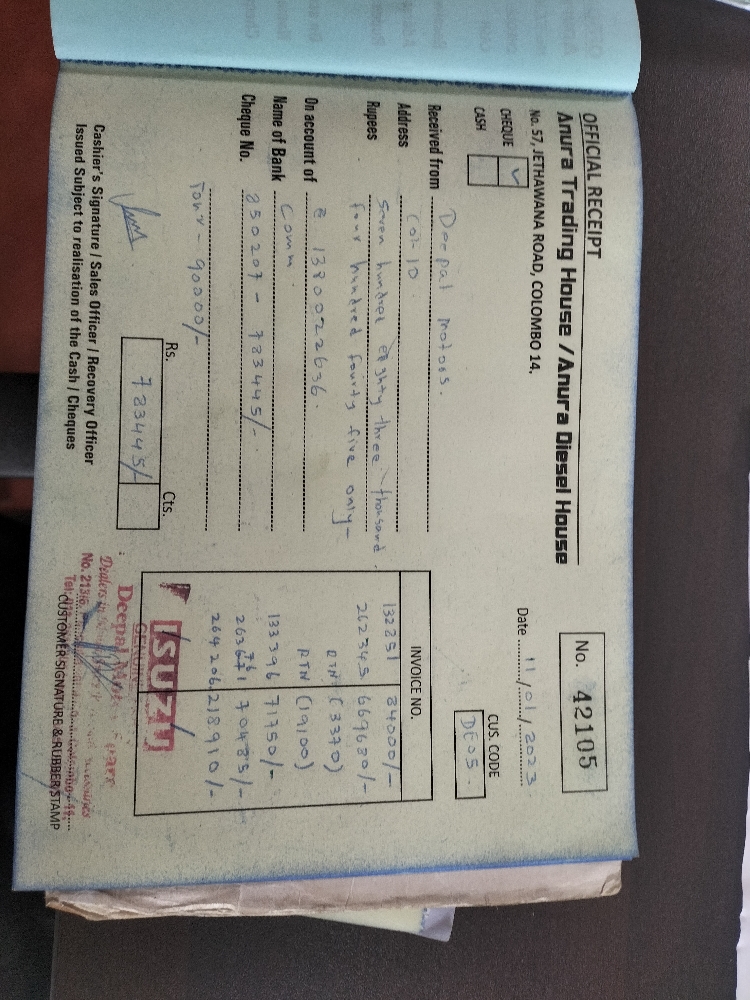 OFFICIAL RECEIPT
Anura Trading House / Anura Diesel House
No. 57, JETHAWANA ROAD, COLOMBO 14.
No. 42105
CHEQUE ✓
CASH
Date 11/01/2023
CUS. CODE DE05
Received from Deepal Motors.
Address Col-10.
Rupees Seven hundred eighty three thousand
four hundred fourty five only-
On account of 1380022636.
Name of Bank Comm.
Cheque No. 850207 - 783445/-
- 90000/-
Rs. Cts.
783445/-
Cashier's Signature / Sales Officer / Recovery Officer
Issued Subject to realisation of the Cash / Cheques
INVOICE NO.
132851 84000/-
262345 669680/-
RTN (3370)
RTN (19100)
133396 71750/-
70485/-
264206 218910/-
GENUINE
ISUZU
Deepal
Dealers in
No. 213/6
Tel:
CUSTOMER SIGNATURE & RUBBER STAMP